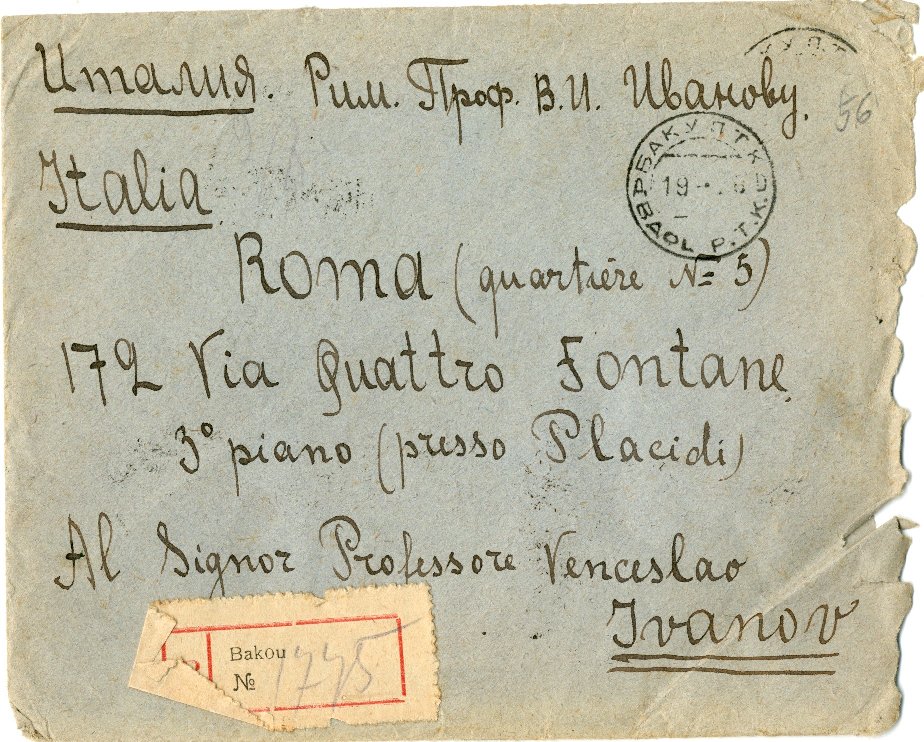 Италия. Рим. Проф. В.И. Иванову.
56
Italia
Roma (quartiere № 5)
172 Via Quattro Fontane
3° piano (presso Placidi)
Al Signor Professore Venceslao
Ivanov
Bakou
№ 1775